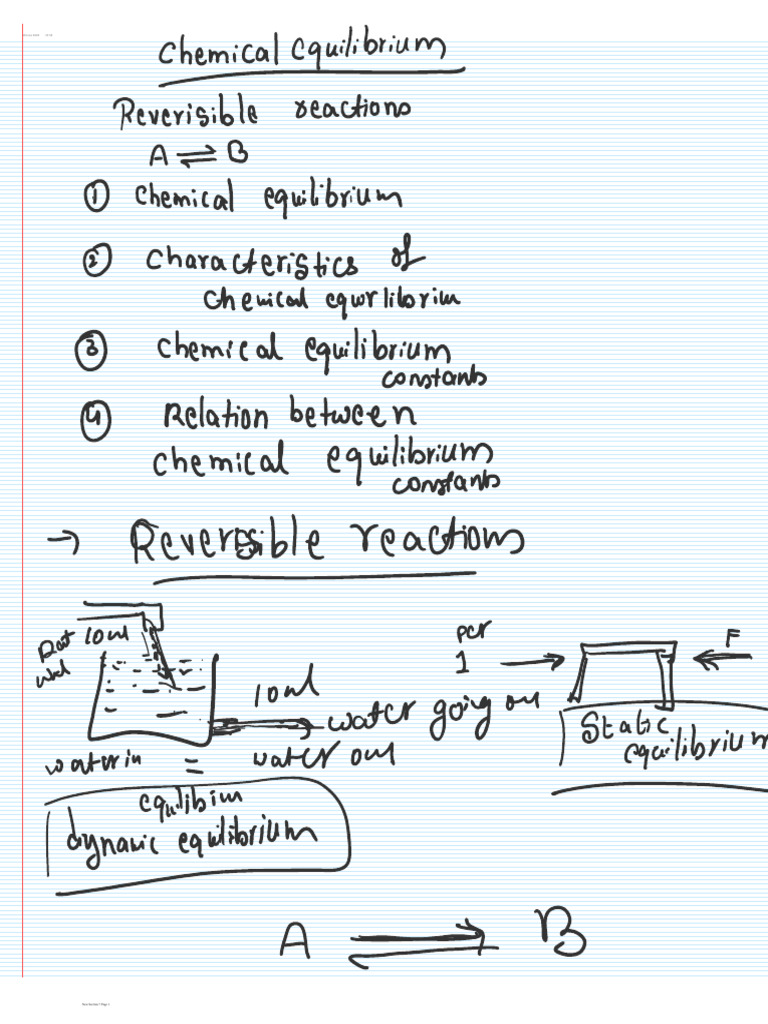 Chemical Equilibrium
Reverisible reactions
A ⇌ B
① Chemical equilibrium
② Characteristics of
Chemical equrlibrim
③ Chemical equilibrium
constants
④ Relation between
Chemical equilibrium
constants
→ Reversible reactions
10 ml
per
1
F
10 ml
water going out
Static
equilibrium
water in = water out
equlibim
dynamic equilibrium
A ⇌ B